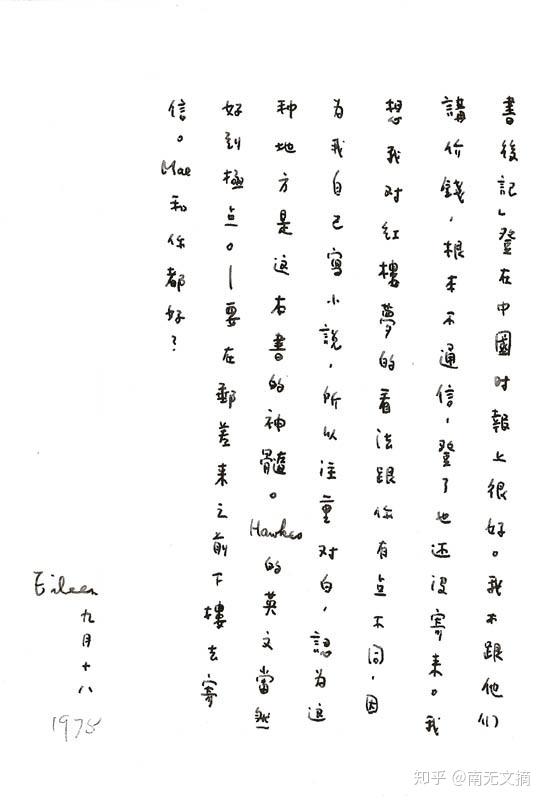 書後記」登在中國时報上很好。我不跟他们
講价錢，根本不通信，登了也还没寄来。我
想我对红樓夢的看法跟你有点不同，因
为我自己寫小說，所以注重对白，認为这
种地方是这本書的神髓。Hawkes的英文當然
好到極点。—要在郵差来之前下樓去寄
信。Mae和你都好？
Eileen
九月十八
1978
知乎 @南无文摘